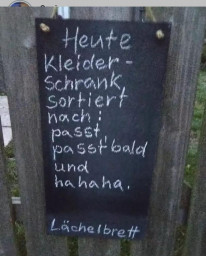 Heute
Kleider-
schrank
sortiert
nach:
passt,
passt bald
und
hahaha.
Lächelbrett